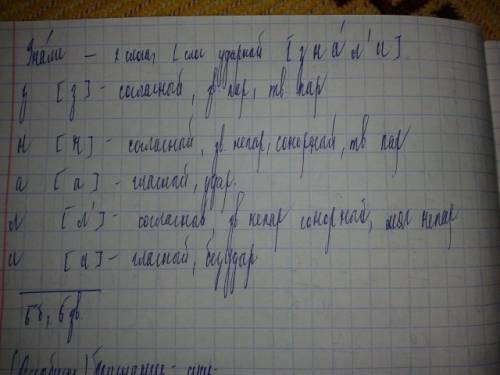 Зна́ли — 2 слога, 1 слог ударной [зна́л'и]
з [з] - согласной, зв пар, тв пар
н [н] - согласной, зв. непар, сонорной, тв пар
а [а] - гласной, удар.
л [л'] - согласной, зв непар сонорной, мягк непар
и [и] - гласной, безудар
5 б, 5 зв.